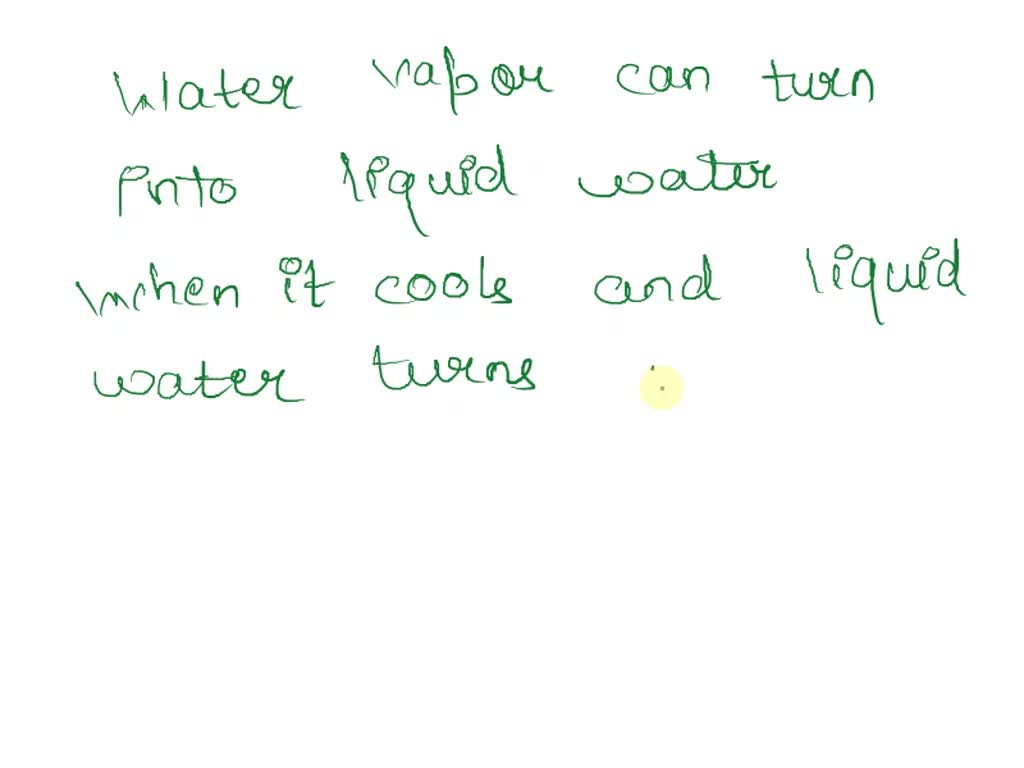 Water vapor can turn
into liquid water
when it cools and liquid
water turns